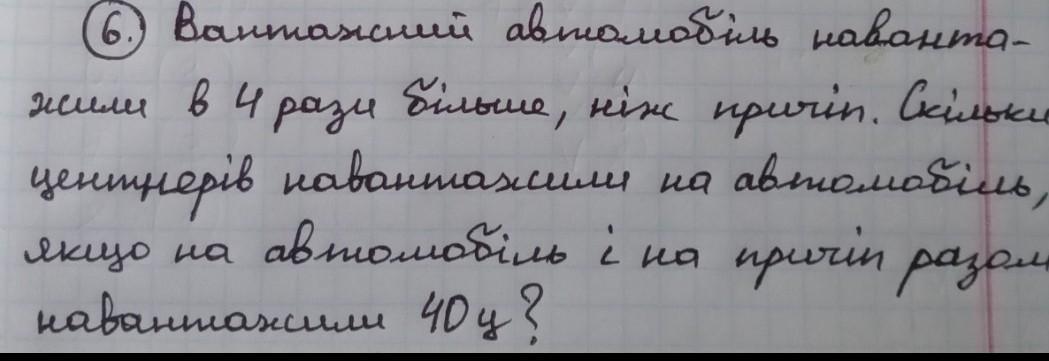 6. Вантажний автомобіль наванта-
жили в 4 рази більше, ніж причіп. Скільки
центнерів навантажили на автомобіль,
якщо на автомобіль і на причіп разом
навантажили 40 ц?